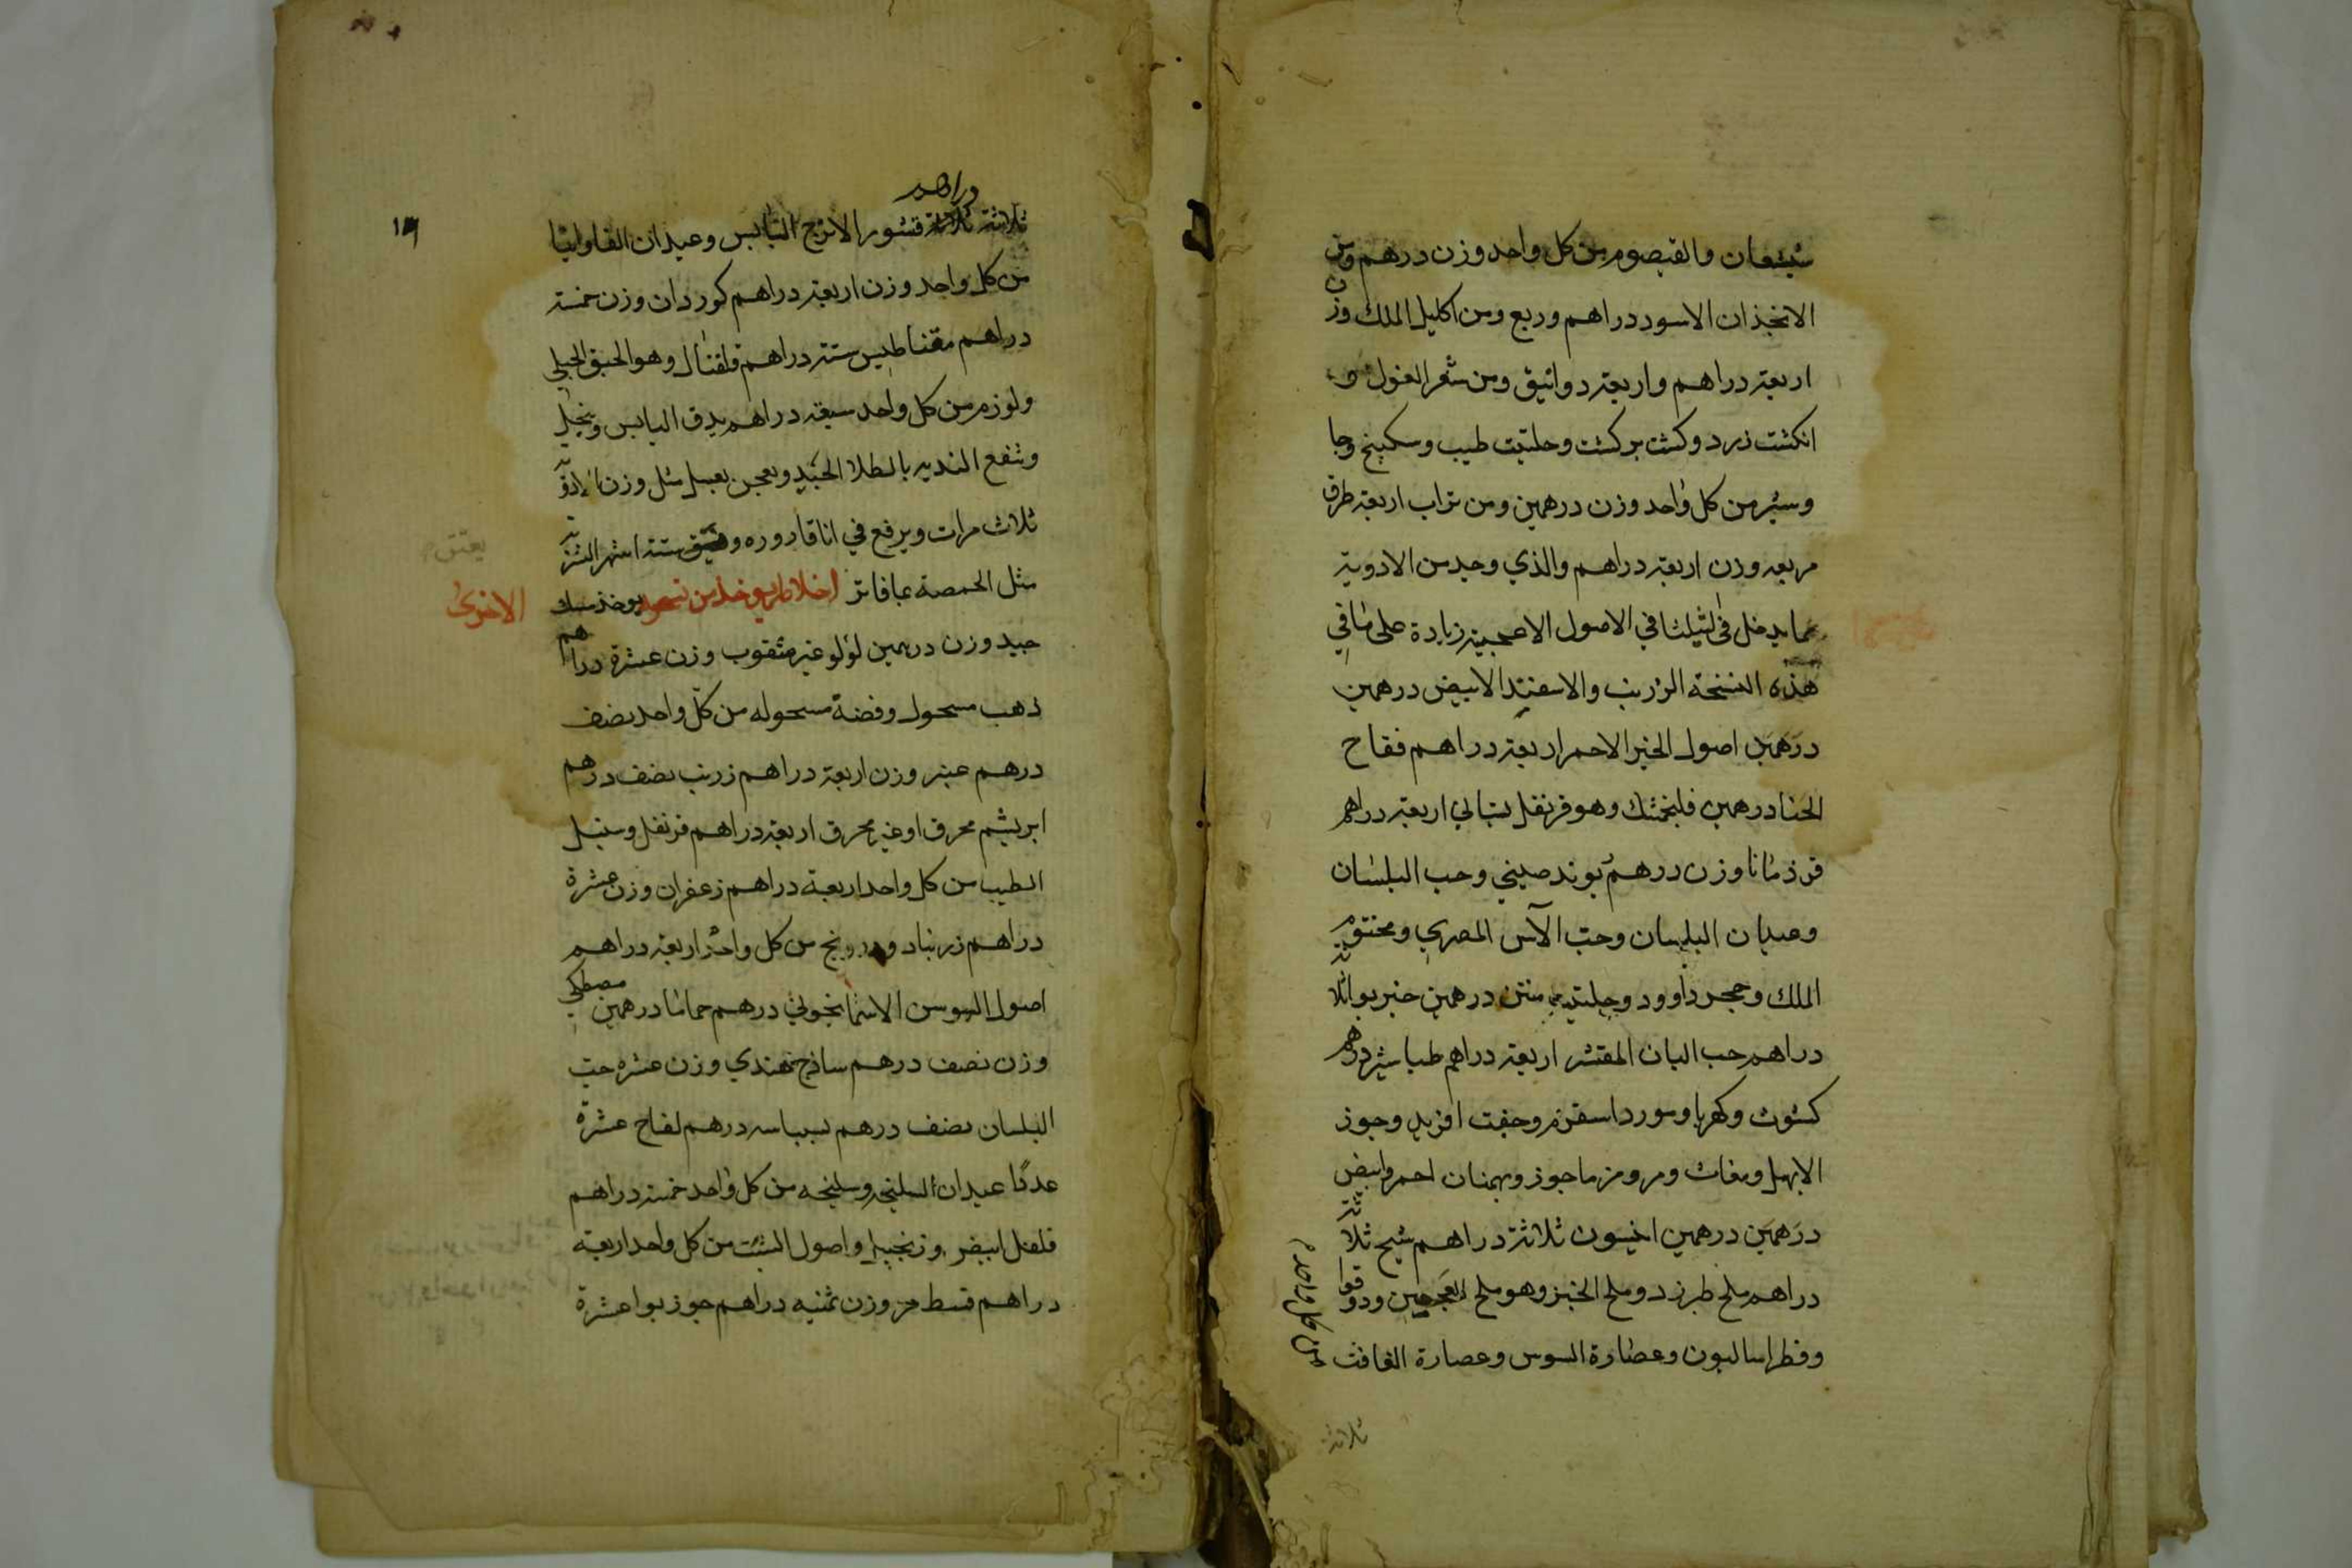 شيشعان والقيصوم من كل واحد وزن درهم ومن
الانجذان الاسود دراهم وربع ومن اكليل الملك وزن
اربعة دراهم واربعة دوانيق ومن شعر الغول
انكشت زرد وكشت بركشت وحلتيت طيب وسكبينج وجا
وسير من كل واحد وزن درهمين ومن تراب اربعة طرق
مربعه وزن اربعة دراهم والذي وجد من الادوية
مما يدخل في الثيلثا في الاصول الاعجمية زيادة على ما في
هذه النسخة الزرنب والاسفند الابيض درهمين
درهمين اصول الخير الاحمر اربعة دراهم فقاح
الحنا درهمين فلنجمشك وهو قرنفل بستاني اربعة دراهم
قرذمانا وزن درهم بوند صيني وحب البلسان
وعيدان البلسان وحب الآس المصري ومختوم
الملك وحجر داوود وحلتيت منتن درهمين خير بوا ثلاثة
دراهم حب البان المقشر اربعة دراهم طباشير درهم
كشوث وكهربا وسورد اسقرم وجفت افريد وجوز
الابهل ومغاث ومرو ومرماجوز وبهمنان احمر وابيض
درهمين درهمين انيسون ثلاثة دراهم شيح ثلاثة
دراهم ملح طبرزد وملح الخبز وهو ملح العجين ودوقوا
وفطراساليون وعصارة السوس وعصارة الغافث
من كل واحد
ثلاثة
١٩
دراهم
ثلاثة ثلاثة قشور الاترج اليابس وعيدان الفاوانيا
من كل واحد وزن اربعة دراهم كوردان وزن خمسة
دراهم مقناطيس ستة دراهم فلقنال وهو الحبق الجبلي
ولوزمر من كل واحد سبعة دراهم يدق اليابس وينخل
وتنقع الندية بالطلا الجيد ويعجن بعسل مثل وزن الادوية
ثلاث مرات ويرفع في انا قاروره ويعتق ستة اشهر الشربة
يعتق
مثل الحمصة بما فاتر اخلاط يوخذ من نسخه يوخذ مسك
الاخرى
جيد وزن درهمين لؤلؤ غير مثقوب وزن عشرة دراهم
ذهب مسحول وفضة مسحوله من كل واحد نصف
درهم عنبر وزن اربعة دراهم زرنب نصف درهم
ابريشم محرق او غير محرق اربعة دراهم قرنفل وسنبل
الطيب من كل واحد اربعة دراهم زعفران وزن عشرة
دراهم زرنباد ودرونج من كل واحد اربعة دراهم
اصول السوسن الاسمانجوني درهم حماما درهمين مصطكي
وزن نصف درهم ساذج هندي وزن عشره حب
البلسان نصف درهم بسباسه درهم لفاح عشرة
عددًا عيدان السليخه وسليخه من كل واحد خمسة دراهم
فلفل ابيض وزنجبيل واصول الشبت من كل واحد اربعة
دراهم قسط مر وزن ثمنيه دراهم جوز بوا عشرة